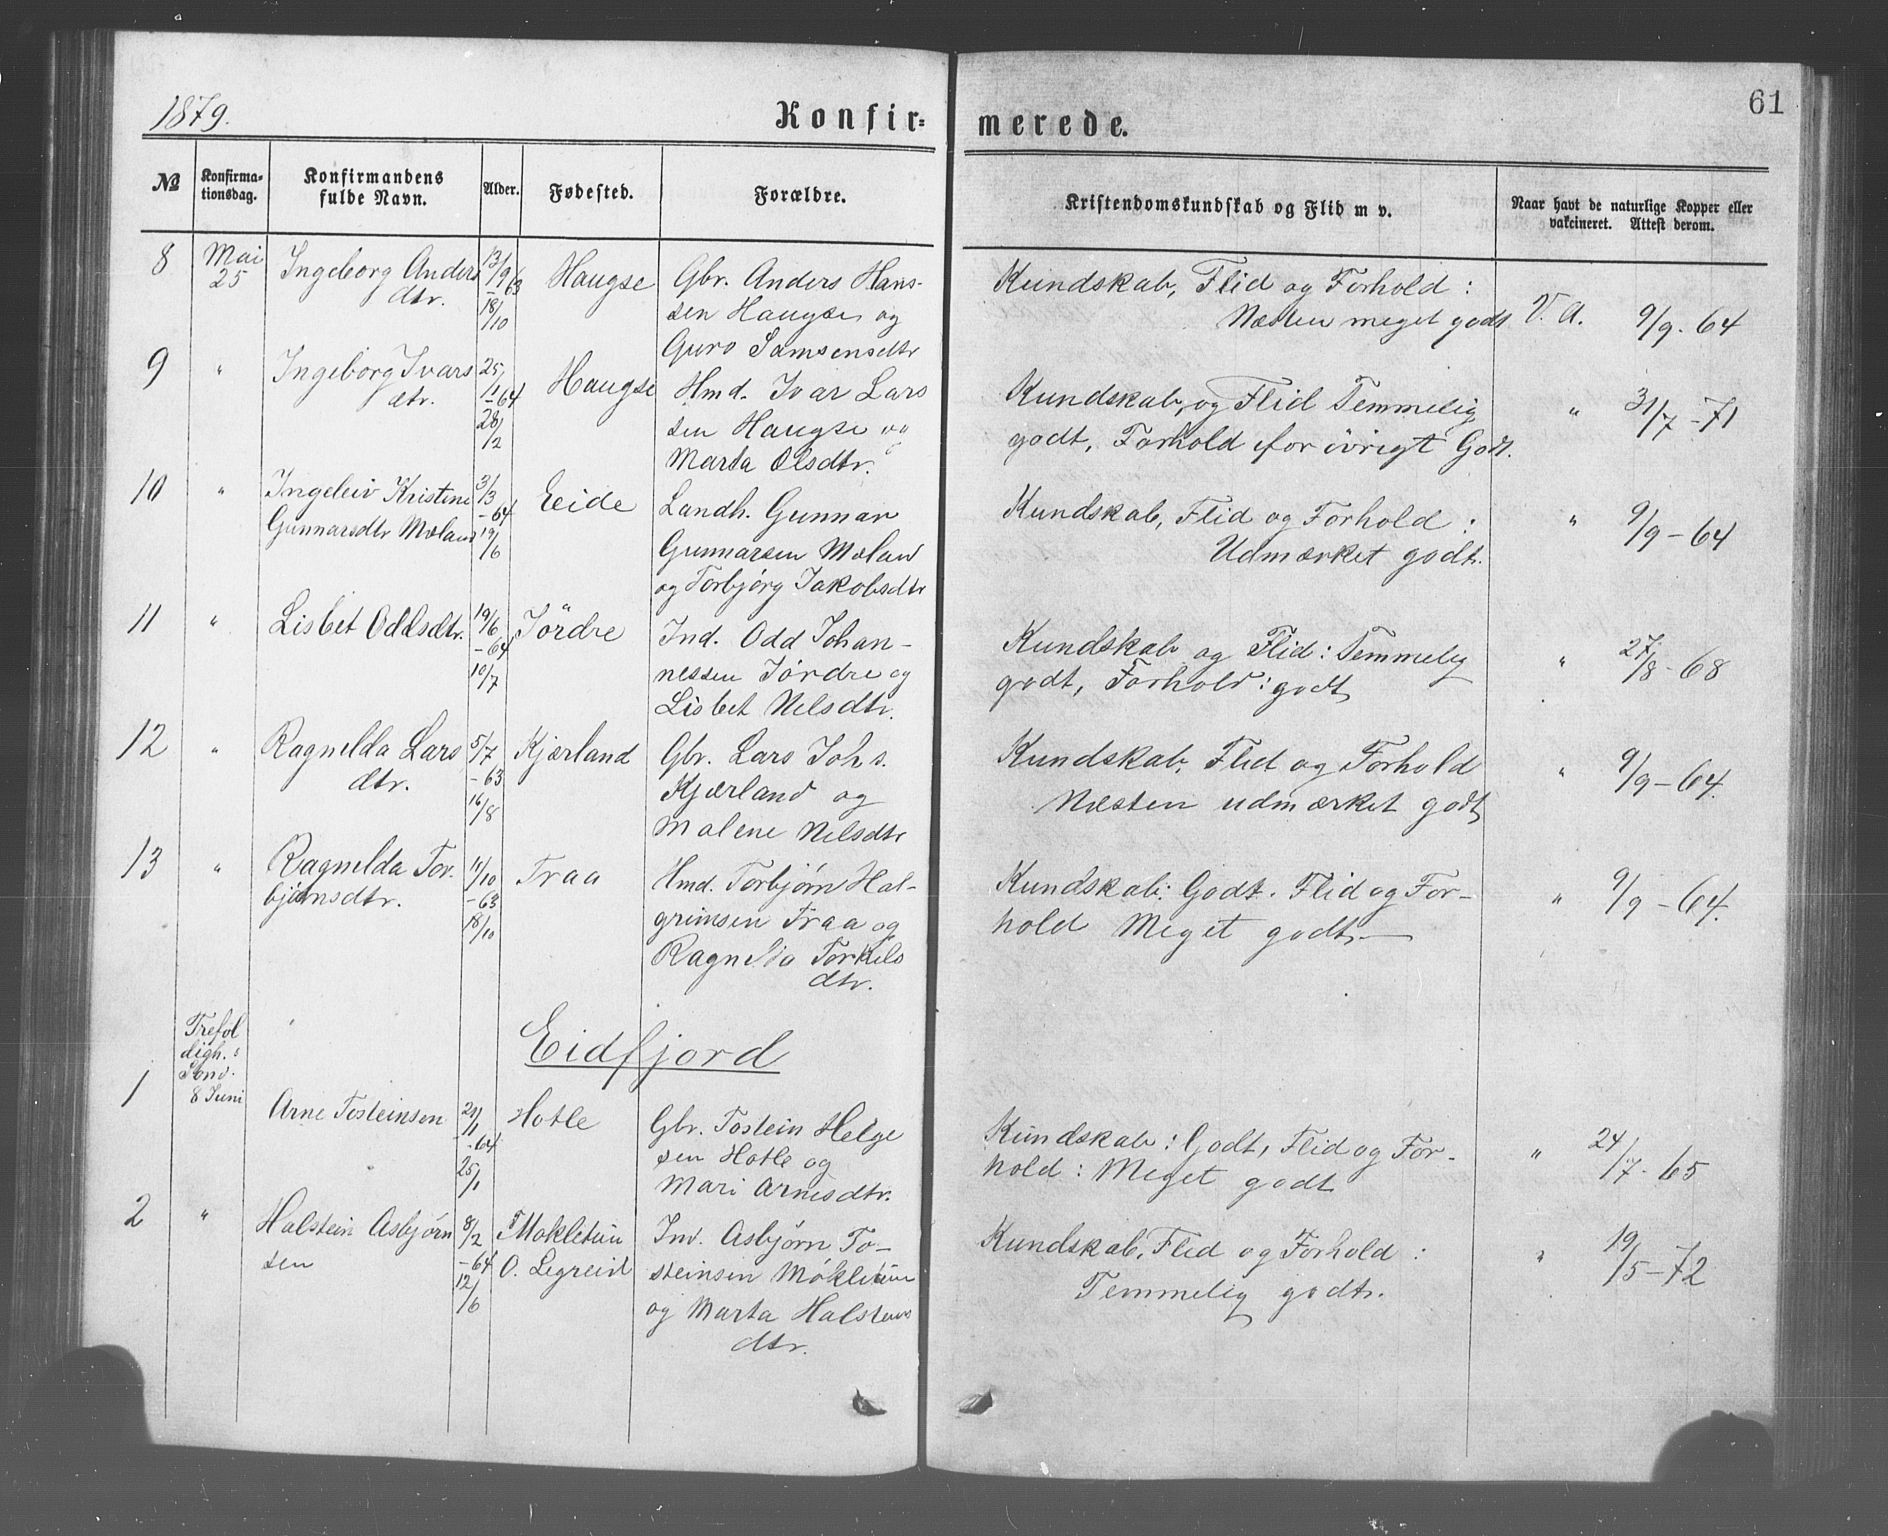 1879.
Konfir-
merede.
61
No
Konfirma-
tionsdag.
Konfirmandens
fulde Navn.
Alder.
Fødested.
Forældre.
Kristendomskundskab og Flid m v.
Naar havt de naturlige Kopper eller
vakcineret. Attest derom.
8 Mai 25 Ingeborg Anders
dtr.
13/9 63
18/10
Haugse
Gbr. Anders Hans-
sen Haugse og
Guro Samsensdtr
Kundskab, Flid og Forhold :
Næsten meget godt
V. A. 9/9. 64
9 " Ingeborg Ivars
dtr.
25/1 -64
28/2
Haugse
Hmd. Ivar Lars
sen Haugse og
Marta Olsdtr.
Kundskab, og Flid Temmelig
godt, Forhold for övrigt Godt.
" 31/7 -71
10 " Ingeleiv Kristine
Gunnarsdtr Mæland
3/3 -64
19/6
Eeide
Landh. Gunnar
Gunnarsen Mæland
og Torbjörg Jakobsdtr
Kundskab, Flid og Forhold :
Udmærket godt.
" 9/9 - 64
11 " Lisbet Oddsdtr.
19/6 -64
10/7
Jördre
Ind. Odd Johan-
nessen Jördre og
Lisbet Nelsdtr.
Kundskab og Flid : Temmelig
godt, Forhold : godt
" 27/8 - 68
12 " Ragnelda Lars
dtr.
5/7 -63
16/8
Kjærland
Gbr. Lars Johs.
Kjærland og
Malene Nilsdtr
Kundskab, Flid og Forhold
Næsten udmærket godt
" 9/9 - 64.
13 " Ragnelda Tor-
björnsdtr.
11/10 -63
18/10
Traa
Hmd. Torbjørn Hal-
grimsen Traa og
Ragnelda Torkils
dtr.
Kundskab: Godt. Flid og For-
hold Meget godt. —
" 9/9 - 64.
Trefol
digh. s
Sönd.
8 Juni
Eidfjord
1 Arne Tosteinsen
-64
25/1
Hotle
Gbr. Tostein Helge
sen Hotle og
Mari Arnesdtr.
Kundskab : Godt, Flid og For-
hold : Meget godt
" 24/7 - 65
2 " Halstein Asbjørn
sen
8/2 -64
12/6
Mokletun
O. Legreid
Ind. Asbjørn To-
steinsen Mökletun
og Marta Halsteins
dtr.
Kundskab, Flid og Forhold :
Temmelig godt.
" 19/5 - 72